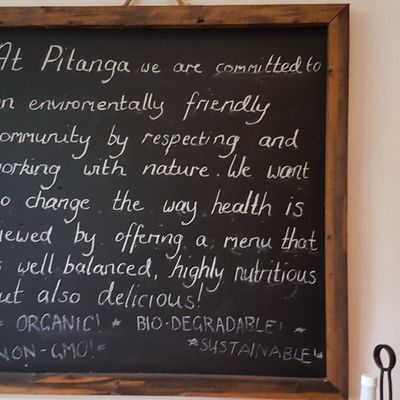 At Pitanga we are committed to
an enviromentally friendly
ommunity by respecting and
orking with nature. We want
o change the way health is
iewed by offering a menu that
s well balanced, highly nutritious
ut also delicious!
* ORGANIC! * BIO-DEGRADABLE!
NON-GMO! * *SUSTAINABLE!*